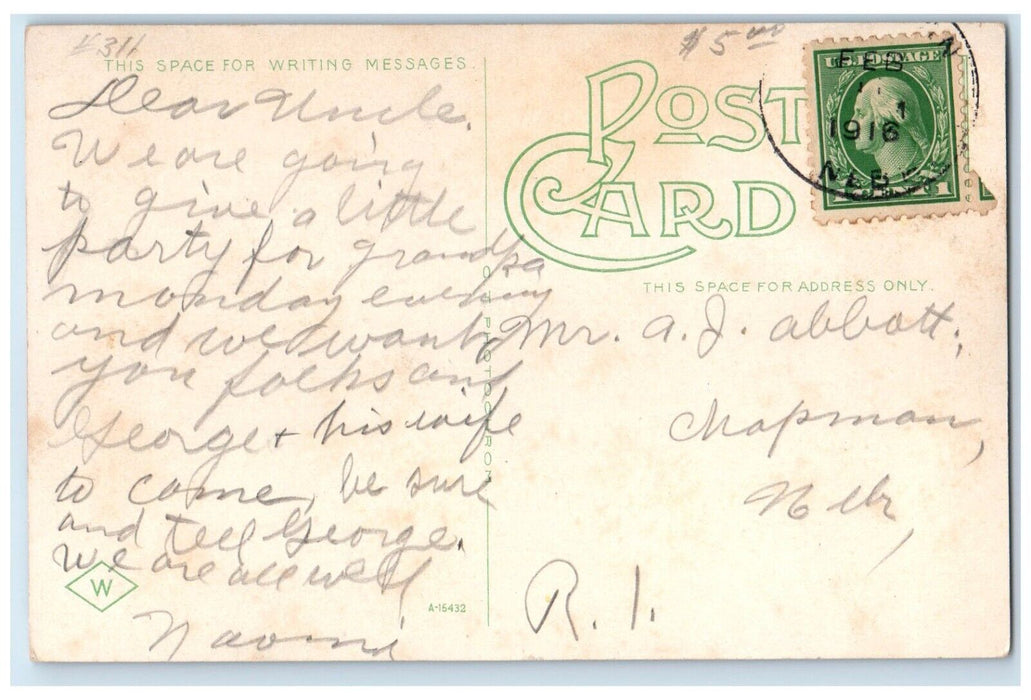 #311
$5.00
THIS SPACE FOR WRITING MESSAGES.
Dear Uncle.
We are going
to give a little
party for grandpa
monday evening
and we want
you folks and
George + his wife
to come, be sure
and tell George.
We are all well
Naomi
W
A-15432
POST
CARD
U.S. POSTAGE
1
FEB
1
1916
NEB.
THIS SPACE FOR ADDRESS ONLY.
Mr. A. J. Abbott,
Chapman,
Neb,
R. 1.